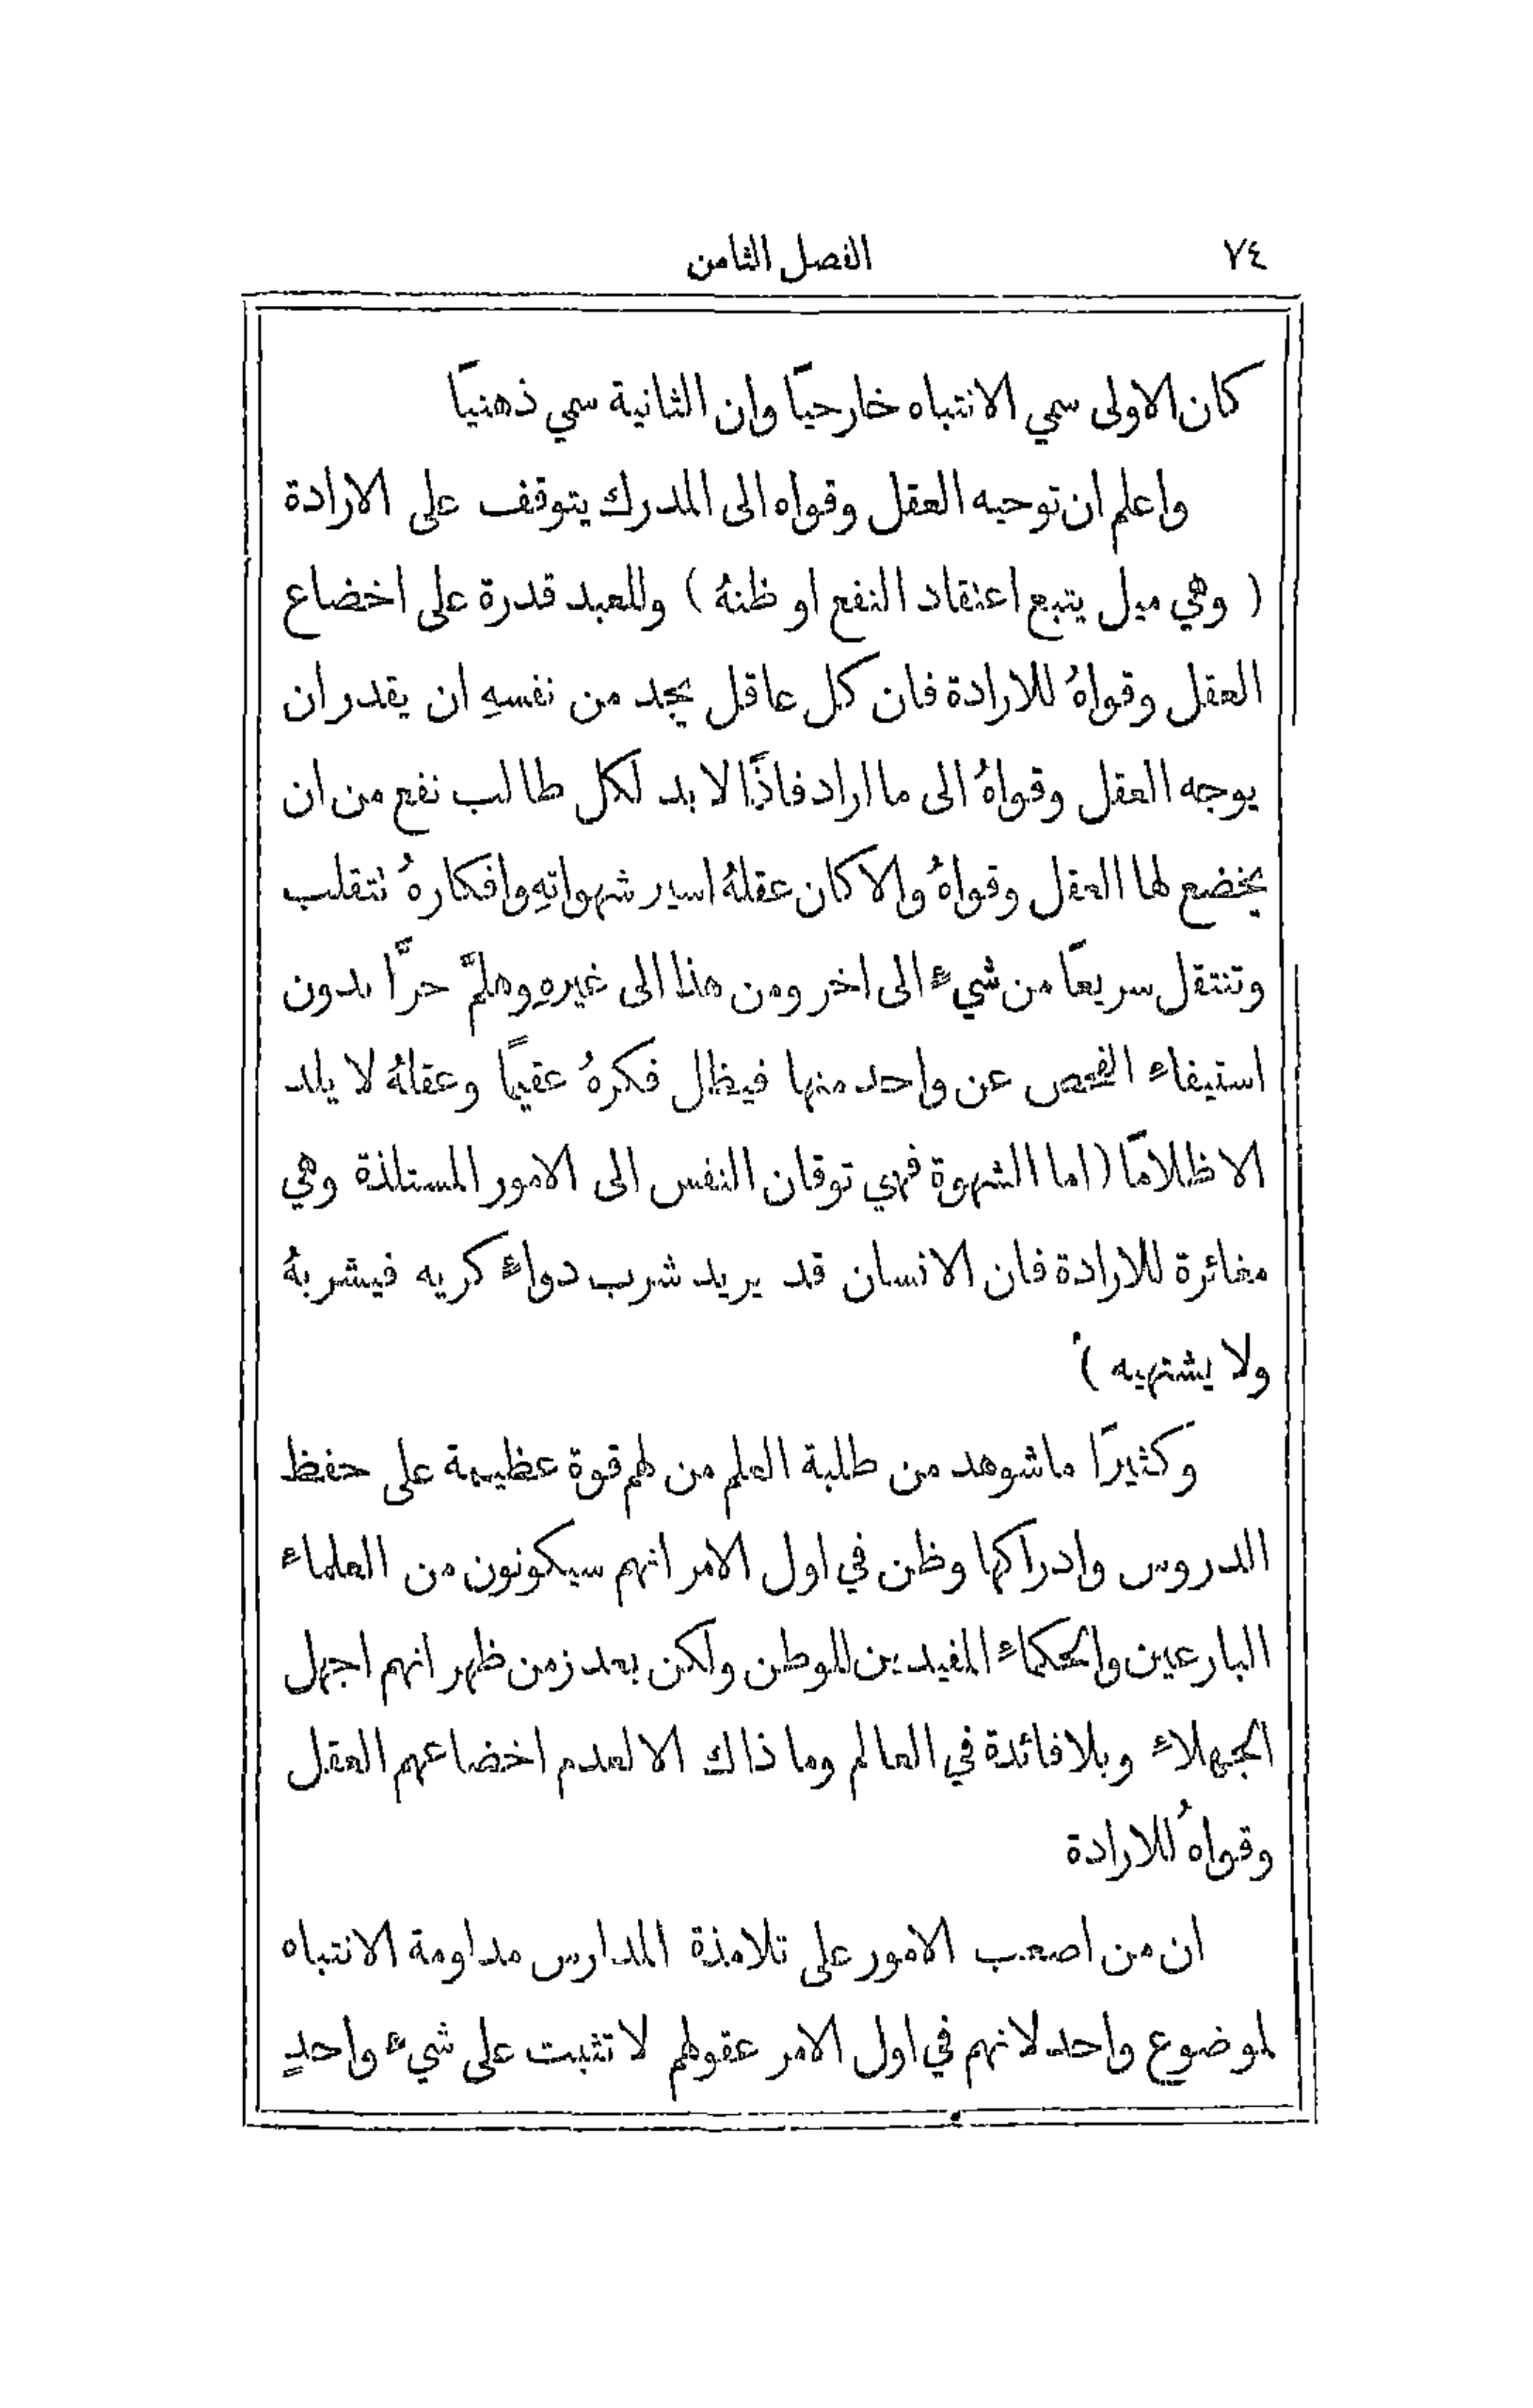 ٧٤ الفصل الثامن
كان الاولى سمي الانتباه خارجيًا وان الثانية سمي ذهنيًا
واعلم ان توجيه العقل وقواه الى المدرك يتوقف على الارادة
( وهي ميل يتبع اعتقاد النفع او ظنهُ ) وللعبد قدرة على اخضاع
العقل وقواهُ للارادة فان كل عاقل يجد من نفسهِ ان يقدر ان
يوجه العقل وقواهُ الى ما اراد فاذًا لا بد لكل طالب نفع من ان
يخضع لها العقل وقواهُ والا كان عقلهُ اسير شهواتهِ وافكارهُ تتقلب
وتنتقل سريعًا من شيءٍ الى اخر ومن هذا الى غيرهِ وهلمَّ جرًّا بدون
استيفاء الفحص عن واحد منها فيظل فكرهُ عقيمًا وعقلهُ لا يلد
الا ظلامًا (اما الشهوة فهي توقان النفس الى الامور المستلذة وهي
مغائرة للارادة فان الانسان قد يريد شرب دواءٍ كريه فيشربهُ
ولا يشتهيه )
وكثيرًا ما شوهد من طلبة العلم من لهم قوة عظيمة على حفظ
الدروس وادراكها وظن في اول الامر انهم سيكونون من العلماء
البارعين والحكماء المفيدين للوطن ولكن بعد زمن ظهر انهم اجهل
الجهلاء وبلا فائدة في العالم وما ذاك الا لعدم اخضاعهم العقل
وقواهُ للارادة
ان من اصعب الامور على تلامذة المدارس مداومة الانتباه
لموضوع واحد لانهم في اول الامر عقولهم لا تثبت على شيء واحدٍ